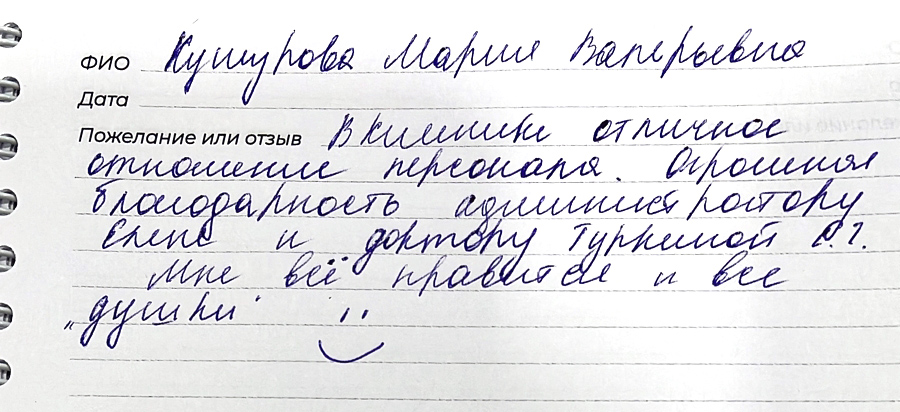 ФИО Кушурова Мария Валерьевна
Дата
Пожелание или отзыв В клинике отличное
отношение персонала. Огромная
благодарность администратору
Елене и доктору Туркиной
Мне всё нравится и все
„душки"